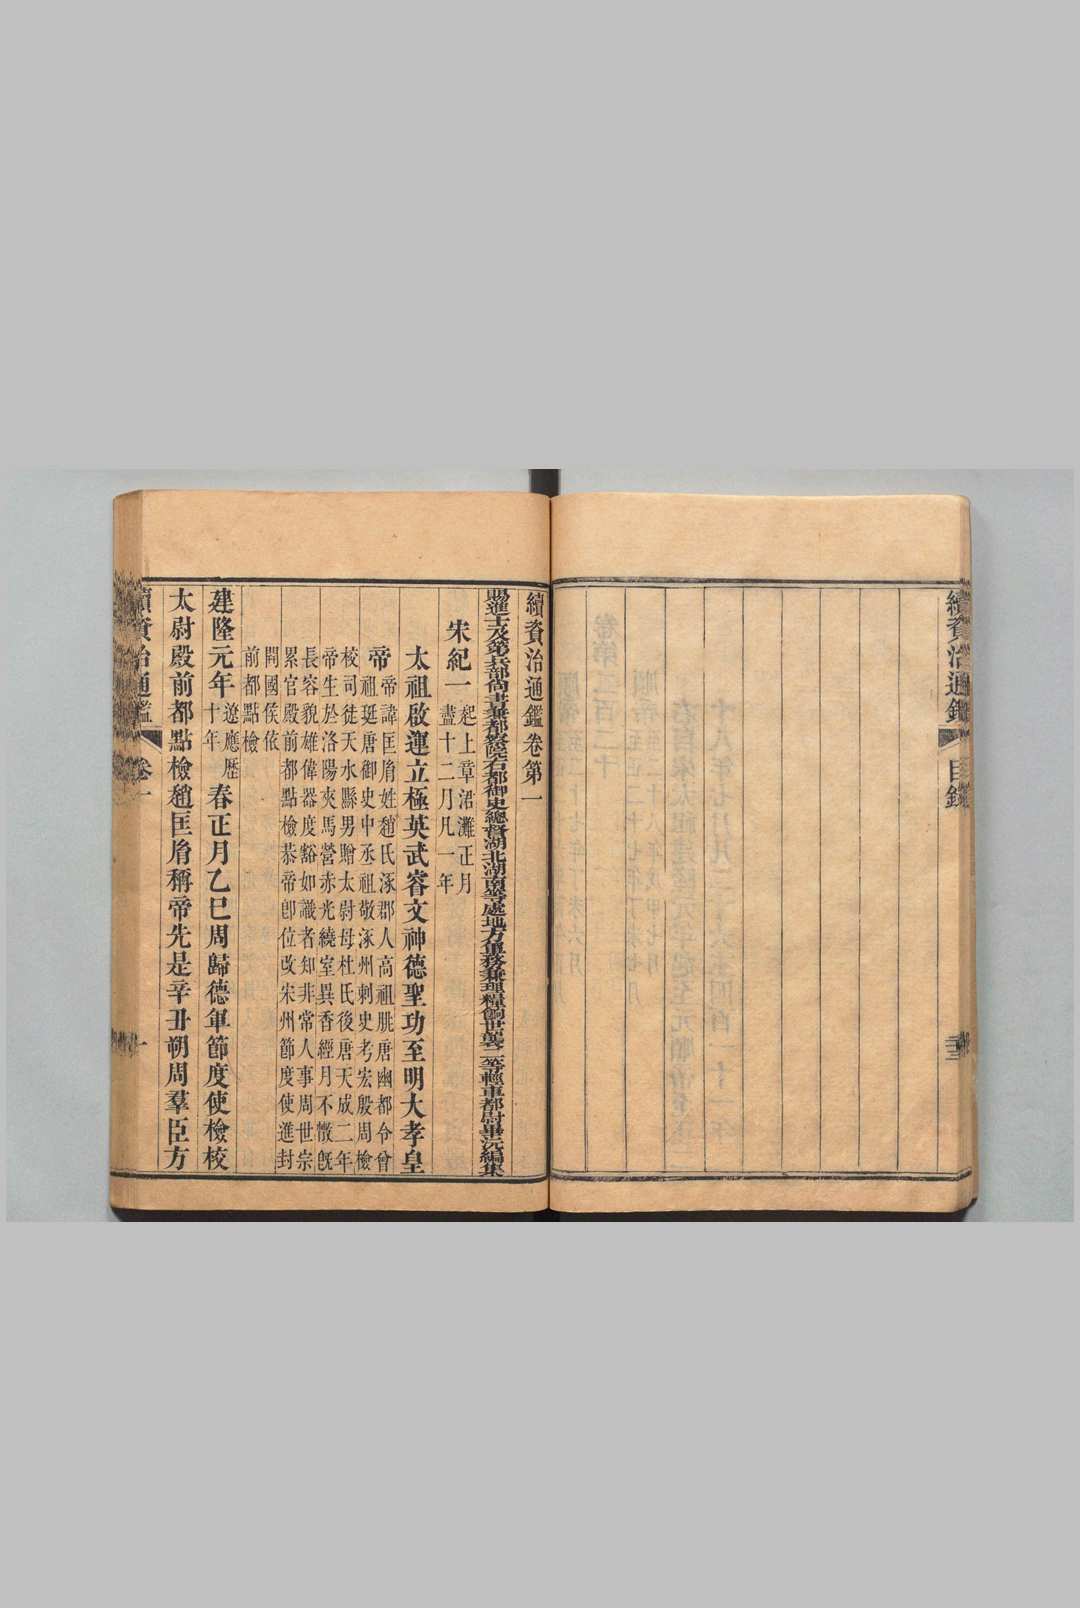 續資治通鑑 目錄 三十三
續資治通鑑卷第一
賜進士及第兵部尚書兼都察院右都御史總督湖北湖南等處地方軍務兼理糧餉世襲二等輕車都尉畢沅編集
宋紀一 起上章涒灘正月
盡十二月凡一年
太祖啟運立極英武睿文神德聖功至明大孝皇
帝 帝諱匡胤姓趙氏涿郡人高祖朓唐幽都令曾
祖珽唐御史中丞祖敬涿州刺史考宏殷周檢
校司徒天水縣男贈太尉母杜氏後唐天成二年
帝生於洛陽夾馬營赤光繞室異香經月不散既
長容貌雄偉器度豁如識者知非常人事周世宗
累官殿前都點檢恭帝卽位改宋州節度使進封
開國侯依
前都點檢
建隆元年 遼應歷
十年 春正月乙巳周歸德軍節度使檢校
太尉殿前都點檢趙匡胤稱帝先是辛丑朔周羣臣方
續資治通鑑 卷一 一